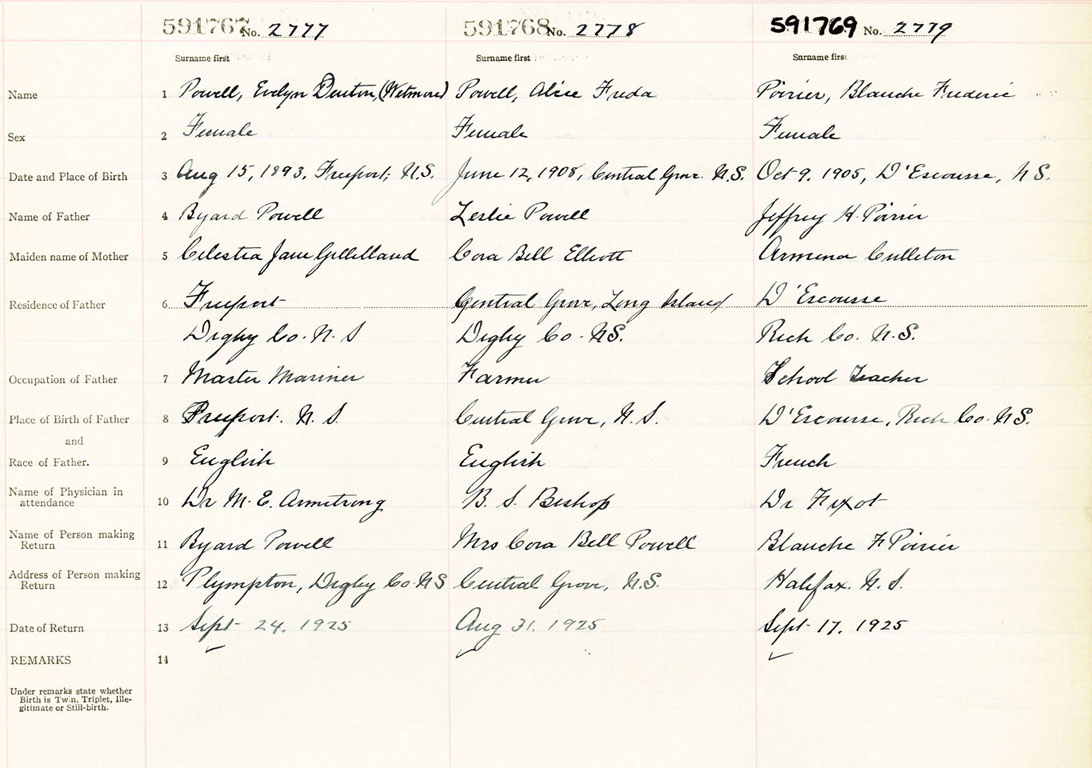 591767 No. 2777 591768 No. 2778 591769 No. 2779
Surname first Surname first Surname first
Name 1 Powell, Evelyn Denton, (Wetmore) Powell, Alice Freda Poirier, Blanche Frederic
Sex 2 Female Female Female
Date and Place of Birth 3 Aug 15, 1893, Freeport, N.S. June 12, 1908, Central Grove. N.S. Oct 9. 1905, D'Escousse, N S.
Name of Father 4 Byard Powell Leslie Powell Jeffrey H. Poirier
Maiden name of Mother 5 Celestia Jane Gillilland Cora Bell Elliott Armena Culleton
Residence of Father 6 Freeport Central Grove, Long Island D'Escousse
Digby Co. N. S Digby Co. N.S. Rich Co. N.S.
Occupation of Father 7 Master Mariner Farmer School Teacher
Place of Birth of Father 8 Freeport. N. S. Central Grove, N. S. D'Escousse, Rich Co. N.S.
and
Race of Father. 9 English English French
Name of Physician in
attendance 10 Dr M. E. Armstrong B. S. Bishop Dr Fixot
Name of Person making
Return 11 Byard Powell Mrs Cora Bell Powell Blanche F Poirier
Address of Person making
Return 12 Plympton, Digby Co. N S Central Grove, N.S. Halifax. N. S.
Date of Return 13 Sept 24. 1925 Aug 31. 1925 Sept 17. 1925
REMARKS 14
Under remarks state whether
Birth is Twin, Triplet, Ille-
gitimate or Still-birth.